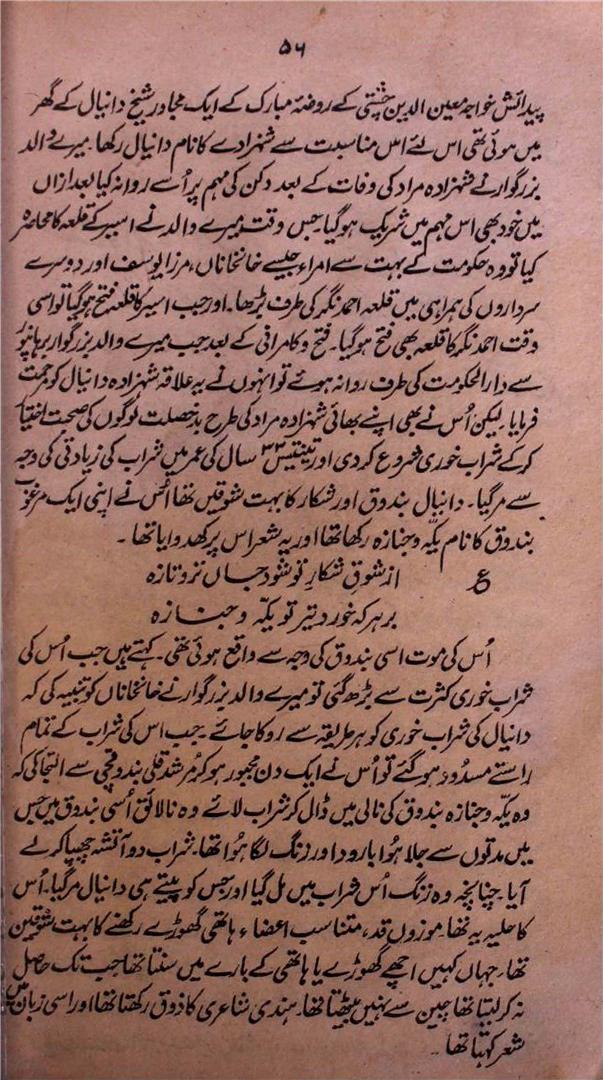 ۵۶
پیدائش خواجہ معین الدین چشتی کے روضۂ مبارک کے ایک مجاور شیخ دانیال کے گھر
میں ہوئی تھی اس لئے اس مناسبت سے شہزادے کا نام دانیال رکھا۔ میرے والد
بزرگوار نے شہزادہ مراد کی وفات کے بعد دکن کی مہم پر اُسے روانہ کیا بعد ازاں
میں خود بھی اس مہم میں شریک ہوگیا۔ جس وقت میرے والد نے اسیر کے قلعہ کا محاصرہ
کیا تو وہ حکومت کے بہت سے امراء جیسے خانخاناں، مرزا یوسف اور دوسرے
سرداروں کی ہمراہی میں قلعہ احمد نگر کی طرف بڑھا۔ اور جب اسیر کا قلعہ فتح ہوگیا تو اسی
وقت احمد نگر کا قلعہ بھی فتح ہوگیا۔ فتح و کامرانی کے بعد جب میرے والد بزرگوار برہانپور
سے دارالحکومت کی طرف روانہ ہوئے تو انہوں نے یہ علاقہ شہزادہ دانیال کو مرحمت
فرمایا۔ لیکن اُس نے بھی اپنے بھائی شہزادہ مراد کی طرح بدخصلت لوگوں کی صحبت اختیار
کرکے شراب خوری شروع کردی اور تینتیس ۳۳ سال کی عمر میں شراب کی زیادتی کی وجہ
سے مرگیا۔ دانیال بندوق اور شکار کا بہت شوقین تھا اُس نے اپنی ایک مرغوب
بندوق کا نام یکّہ و جنازہ رکھا تھا اور یہ شعر اس پر کھدوایا تھا۔
ع از شوقِ شکارِ تو شود جاں تر و تازہ
بر ہر کہ خورد تیر تو یکّہ و جنازہ
اُس کی موت اسی بندوق کی وجہ سے واقع ہوئی تھی۔ کہتے ہیں جب اُس کی
شراب خوری کثرت سے بڑھ گئی تو میرے والد بزرگوار نے خانخاناں کو تنبیہ کی کہ
دانیال کی شراب خوری کو ہر طریقہ سے روکا جائے۔ جب اس کی شراب کے تمام
راستے مسدُود ہوگئے تو اُس نے ایک دن مجبور ہوکر مُرشد قلی بندوقچی سے التجا کی کہ
وہ یکّہ و جنازہ بندوق کی نالی میں ڈال کر شراب لائے وہ نالائق اُسی بندوق میں جس
میں مدتوں سے جلا ہُوا بارود اور زنگ لگا ہُوا تھا۔ شراب دو آتشہ چھپا کر لے
آیا۔ چنانچہ وہ زنگ اُس شراب میں مل گیا اور جس کو پیتے ہی دانیال مرگیا۔ اُس
کا حلیہ یہ تھا۔ موزوں قد، متناسب اعضاء ہاتھی گھوڑے رکھنے کا بہت شوقین
تھا۔ جہاں کہیں اچھے گھوڑے یا ہاتھی کے بارے میں سنتا تھا جب تک حاصل
نہ کرلیتا تھا چین سے نہیں بیٹھتا تھا۔ ہندی شاعری کا ذوق رکھتا تھا اور اسی زبان میں
شعر کہتا تھا۔